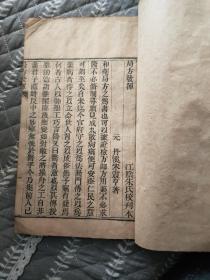 局方發揮
元 丹溪朱震亨著
江陰朱氏校刊本
和劑局方之為書也可㕥據證檢方即方用藥不必求
醫不必修製尋贖見成丸散病痛便可安痊仁民之意
可謂至矣自宋迄今官府守之㕥為法醫門傳之㕥為
業病者恃之㕥立命世人習之㕥成俗然予竊有疑焉
何者古人㕥神聖工巧言醫又曰醫者意也㕥其傳授
雖的造詣雖深臨機應變如對敵之將操舟之工自非
盡君子隨時反中之妙寧無愧於應病乎今乃集前人已